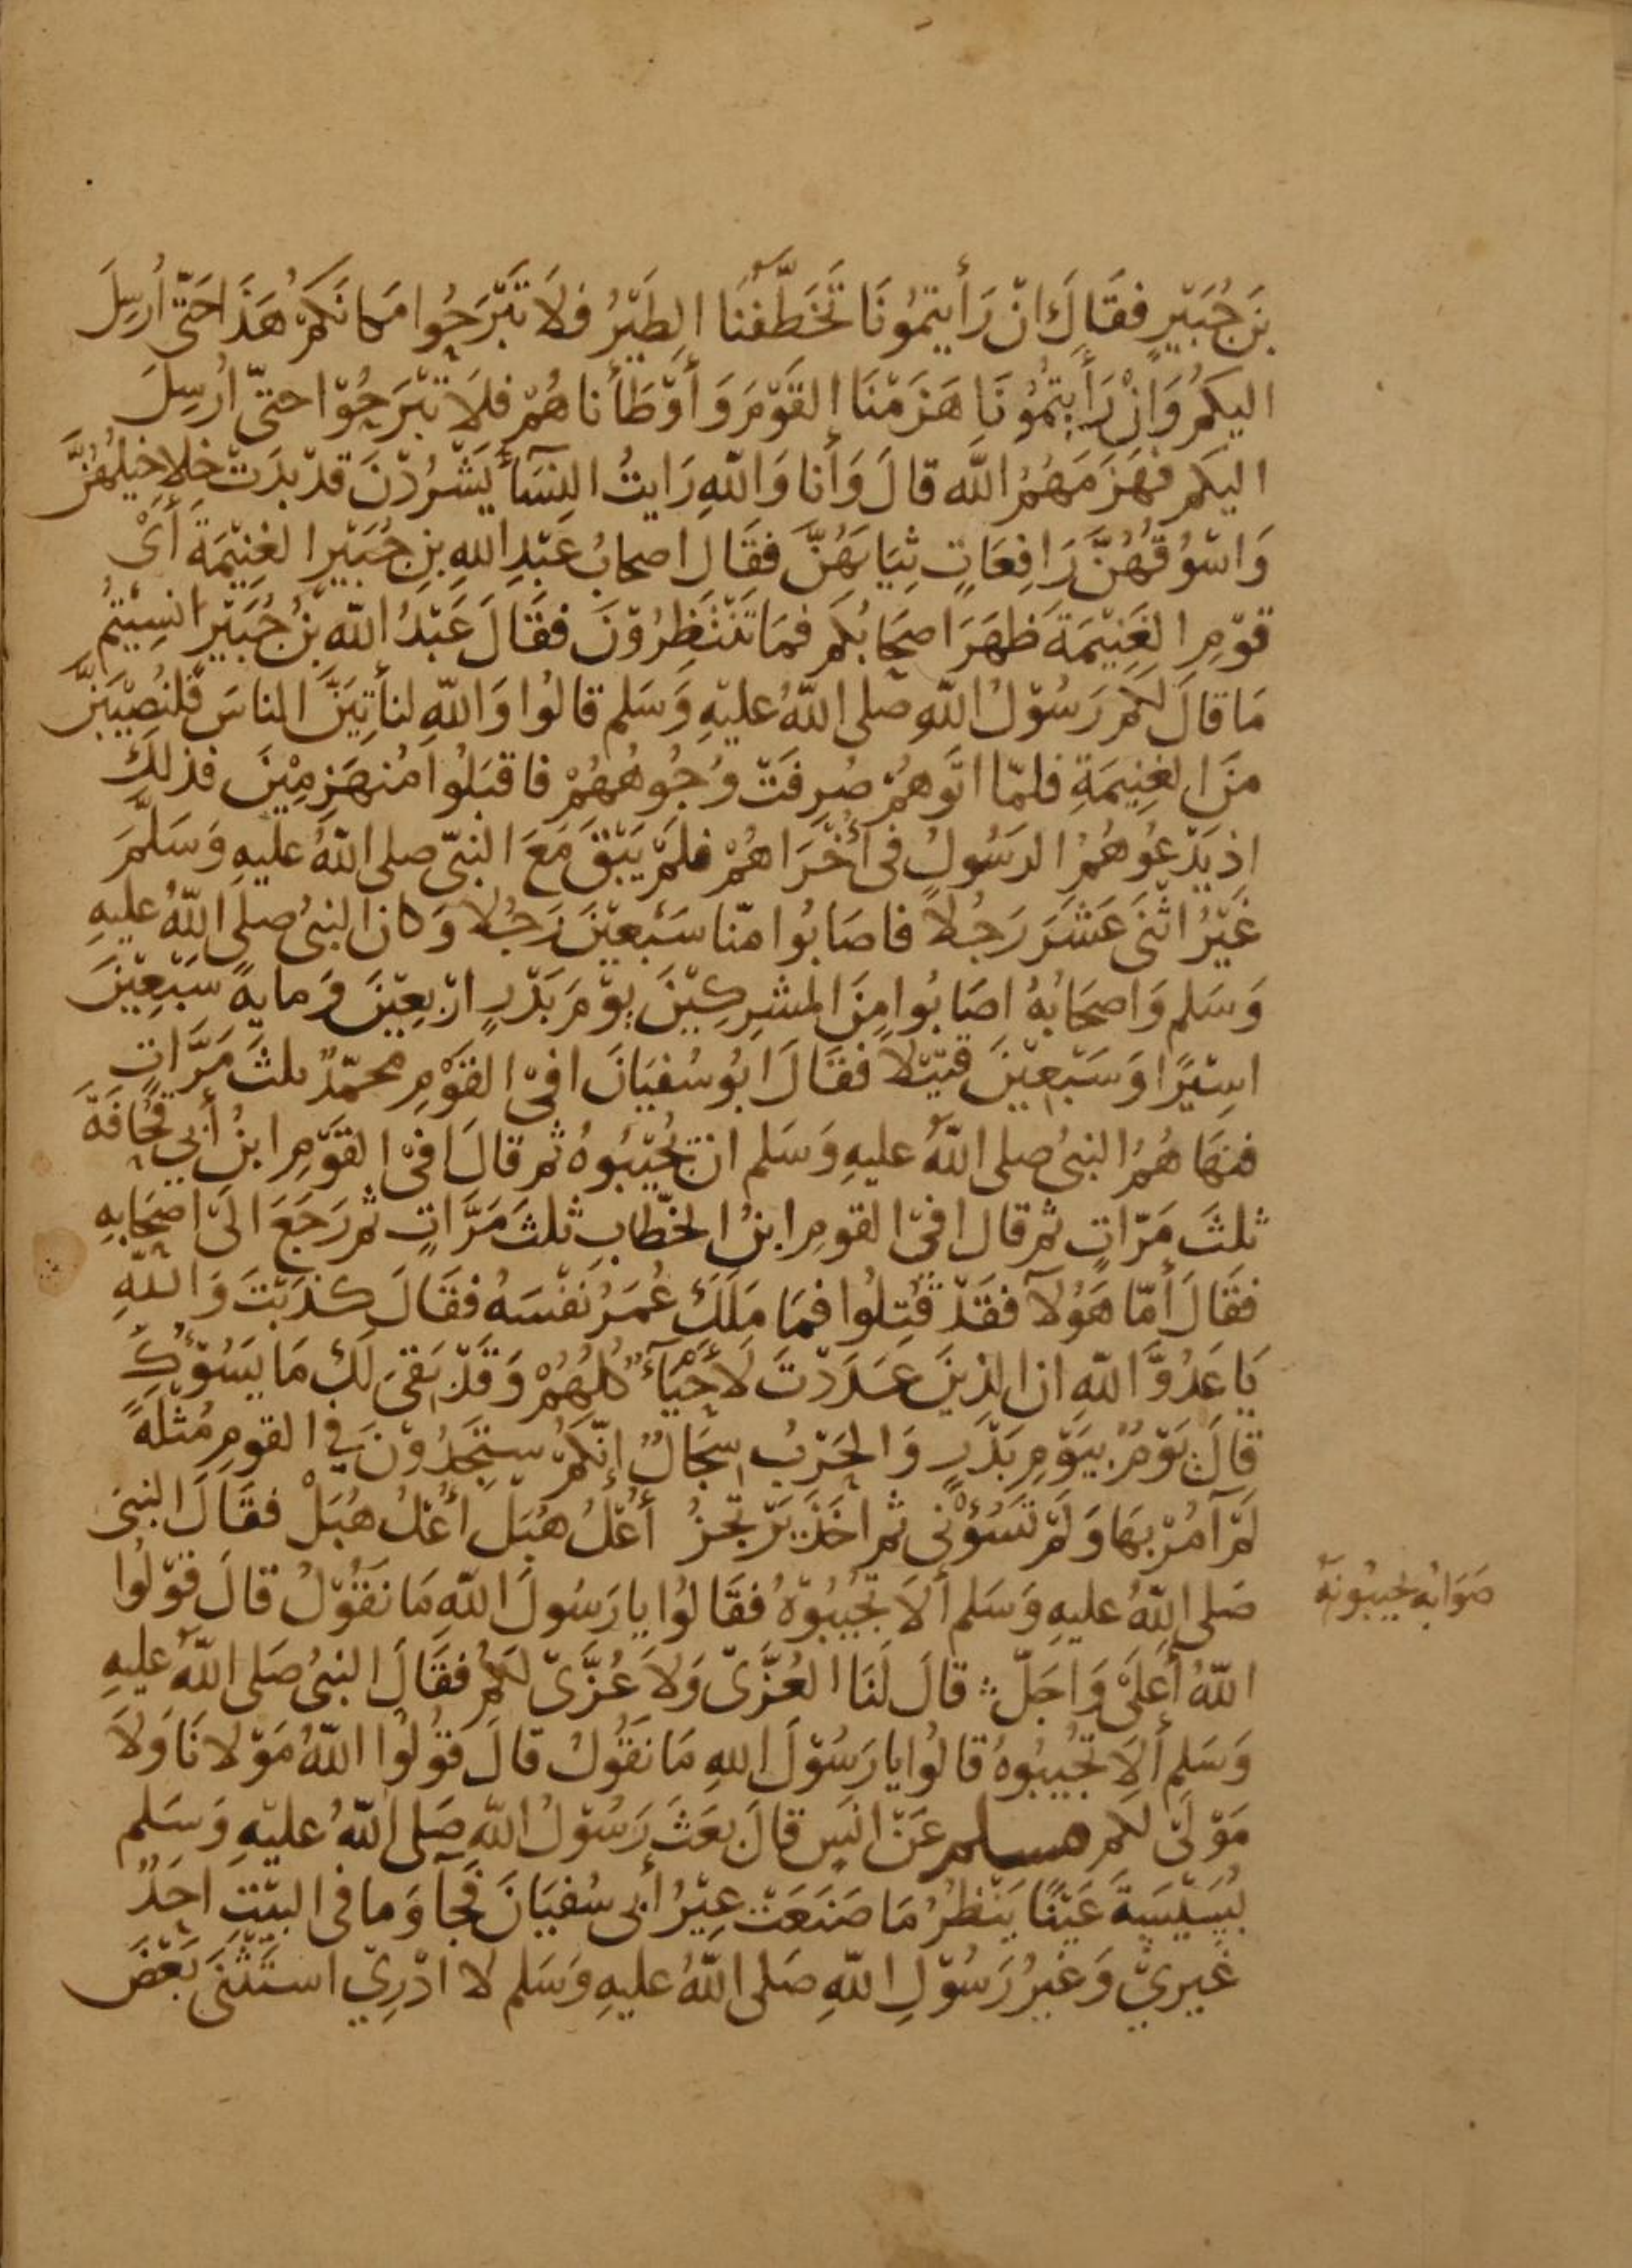 بنَ جُبَيْرٍ فقَالَ انْ رَأَيتمُونَا تَخَطَّفُنَا الطَيْرُ فلاَ تَبْرَحُوا مَكانَكمْ هَذَا حَتّى اُرسِلَ
اليكمُ وَانْ رَأَيتمُونَا هَزَمْنَا القَوْمَ وَأَوْطَأْناهُمْ فلَا تَبْرَحُوْا حتىّ اُرْسِلَ
اليكم فهَزَمَهُمُ اللّه قالَ وَأنا وَاللّهِ رَايتُ النِسَآءَ يَشْرُدْنَ قدْ بدَتْ خلاخيلُهُنَّ
وَاسْوُقُهُنَّ رَافِعَاتٍ ثِيَابَهُنَّ فقَالَ اصحابُ عَبْدِ اللهِ بنِ جُبَيْرٍ الغنِيْمَةَ أَىْ
قوْمِ الغَنِيْمَةَ ظهَرَ اصحَابُكم فمَا تَنْتَظِرُوْنَ فقَالَ عَبْدُ اللّه بنُ جُبَيْرٍ انسِيْتمُ
مَا قالَ لكم رَسُوْلُ اللّهِ صَلى اللّهُ عليْهِ وَسَلم قالوُا وَاللّهِ لنأتِيَنَّ الناسَ فلنُصِيْبَنَّ
منَ الغنِيمَةِ فلمّا اتَوهمُ صُرِفَتْ وُجُوهُهُمْ فاقبَلوُا مُنهَزِمِيْنَ فذلِكَ
اذ يَدْعُوهُمُ الرسُولُ فى أُخْرَاهُمْ فلمْ يَبْقَ مَعَ النبىّ صلى اللّهُ عليهِ وَسَلَّمَ
غَيْرُ اثْنَىْ عَشَرَ رَجُلاً فاصَابُوا منّا سَبْعِيْنَ رَجُلا وَكانَ النبىُ صلى اللّهُ عليهِ
وَسَلم وَاصحَابُهُ اصَابُوا مِنَ المشرِكيْنَ يوْمَ بَدْرٍ ارْبعِيْنَ وَمايةً سَبْعِيْنَ
اسِيْرًا وَسَبْعِيْنَ قتِيْلاً فقَالَ ابُو سُفيَانَ افىْ القَوْمِ محمّدٌ ثلثَ مَرَّاتٍ
فنهَاهُمُ النبىُ صلى اللّهُ عليهِ وَسَلم ان تُجِيْبُوهُ ثم قالَ افىْ القَوْمِ ابنُ أَبي قُحَافَةَ
ثلثَ مَرّاتٍ ثم قال افىْ القومِ ابنُ الخطّابِ ثلثَ مَرَّاتٍ ثم رَجَعَ الىَ اصحَابِهِ
فقَالَ أمّا هَؤُلآ فقَدْ قُتِلُوا فمَا مَلَكَ عُمَرُ نفْسَهُ فقَالَ كذَبْتَ وَاللّهِ
يَا عَدُوَّ اللّهِ ان الذينَ عَدَدْتَ لَأَحْيَآءٌ كلهُمْ وَقدْ بَقىَ لَكَ مَا يَسُوْءُكَ
قالَ يَوْمٌ بيَوْمِ بَدْرٍ وَالحَرْبُ سِجَالٌ إِنّكمْ سَتجدُوْنَ فى القومِ مُثْلَةً
لَمْ آمُرْ بهَا وَلَمْ تَسُؤْنى ثم اخَذَ يَرْتجزُ أُعْلُ هُبَلْ أُعْلُ هُبَلْ فقَالَ النبىُ
صَلى اللّهُ عليهِ وَسَلم ألاَ تُجيْبُوْهُ فقَالوُا يا رَسُولَ اللّهِ مَا نقُوْلُ قالَ قوْلوُا
صَوَابه تجيبُونهُ
اللّهُ أعْلىَ وَاجَلّ قالَ لَنَا العُزَّىْ وَلاَ عُزَّىْ لكمُ فقَالَ النبىُ صَلى اللّهُ عليهِ
وَسَلم أَلاَ تُجيبُوهُ قالوُا يا رَسُوْلَ اللهِ مَا نَقوُلُ قالَ قوُلوُا اللّهُ مَوْلانَا وَلاَ
مَوْلىَ لكم مسلم عَنْ انسٍ قالَ بعَثَ رَسُوْلُ اللّهِ صَلى اللّهُ عليْهِ وَسَلم
بُسَيْسَةَ عَيْنًا يَنْظُرُ مَا صَنَعَتْ عِيْرُ أبى سُفيَانَ فجآ وَما فى البيْتِ احَدٌ
غَيرِيْ وَغيْرُ رَسُوْلِ اللّهِ صَلى اللّهُ عليهِ وَسَلم لا ادْرِيْ استَثْنىَ بَعْضَ